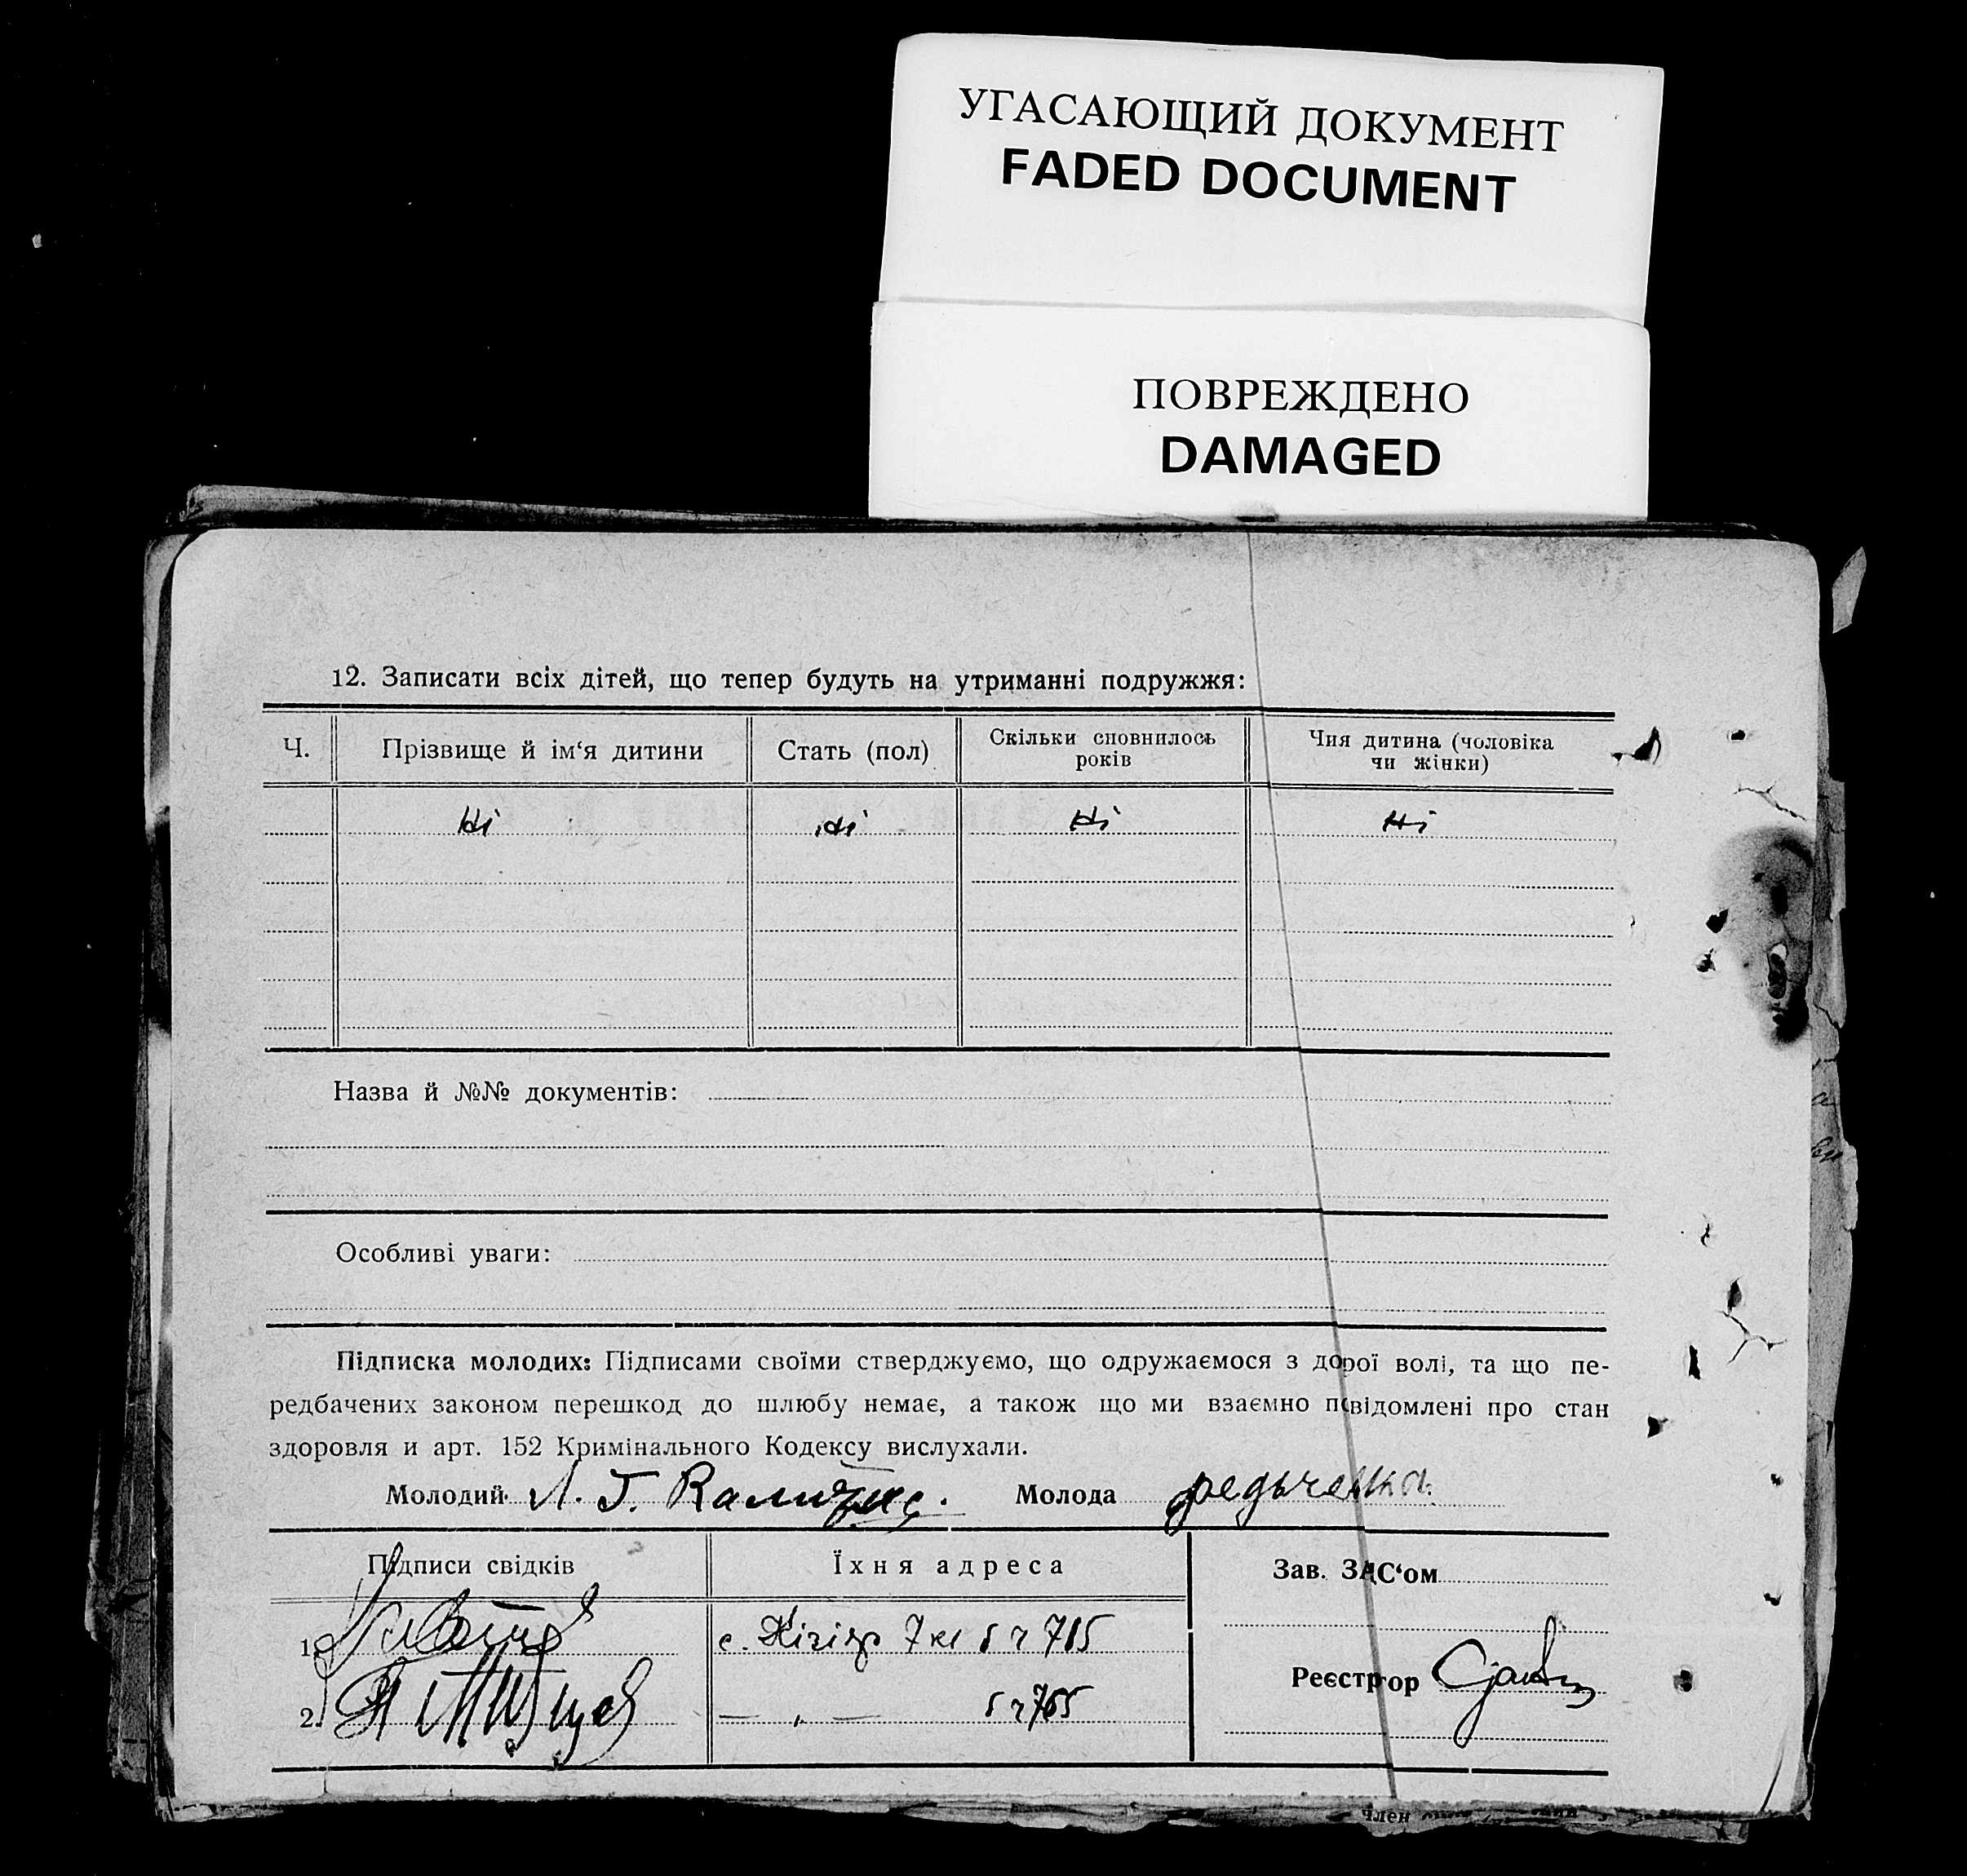 УГАСАЮЩИЙ ДОКУМЕНТ
FADED DOCUMENT
ПОВРЕЖДЕНО
DAMAGED
12. Записати всіх дітей, що тепер будуть на утриманні подружжя:
Ч.
Прізвище й ім‘я дитини
Стать (пол)
Скільки сповнилось
років
Чия дитина (чоловіка
чи жінки)
Ні Ні Ні Ні
Назва й №№ документів:
Особливі уваги:
Підписка молодих: Підписами своїми стверджуємо, що одружаємося з дорої волі, та що пе-
редбачених законом перешкод до шлюбу немає, а також що ми взаємно повідомлені про стан
здоровля и арт. 152 Кримінального Кодексу вислухали.
Молодий Л. Г. Молода
Підписи свідків
Їхня адреса
Зав. ЗАС‘ом
1. с. 7
2. — „ —
Реєстр‘ор
Член